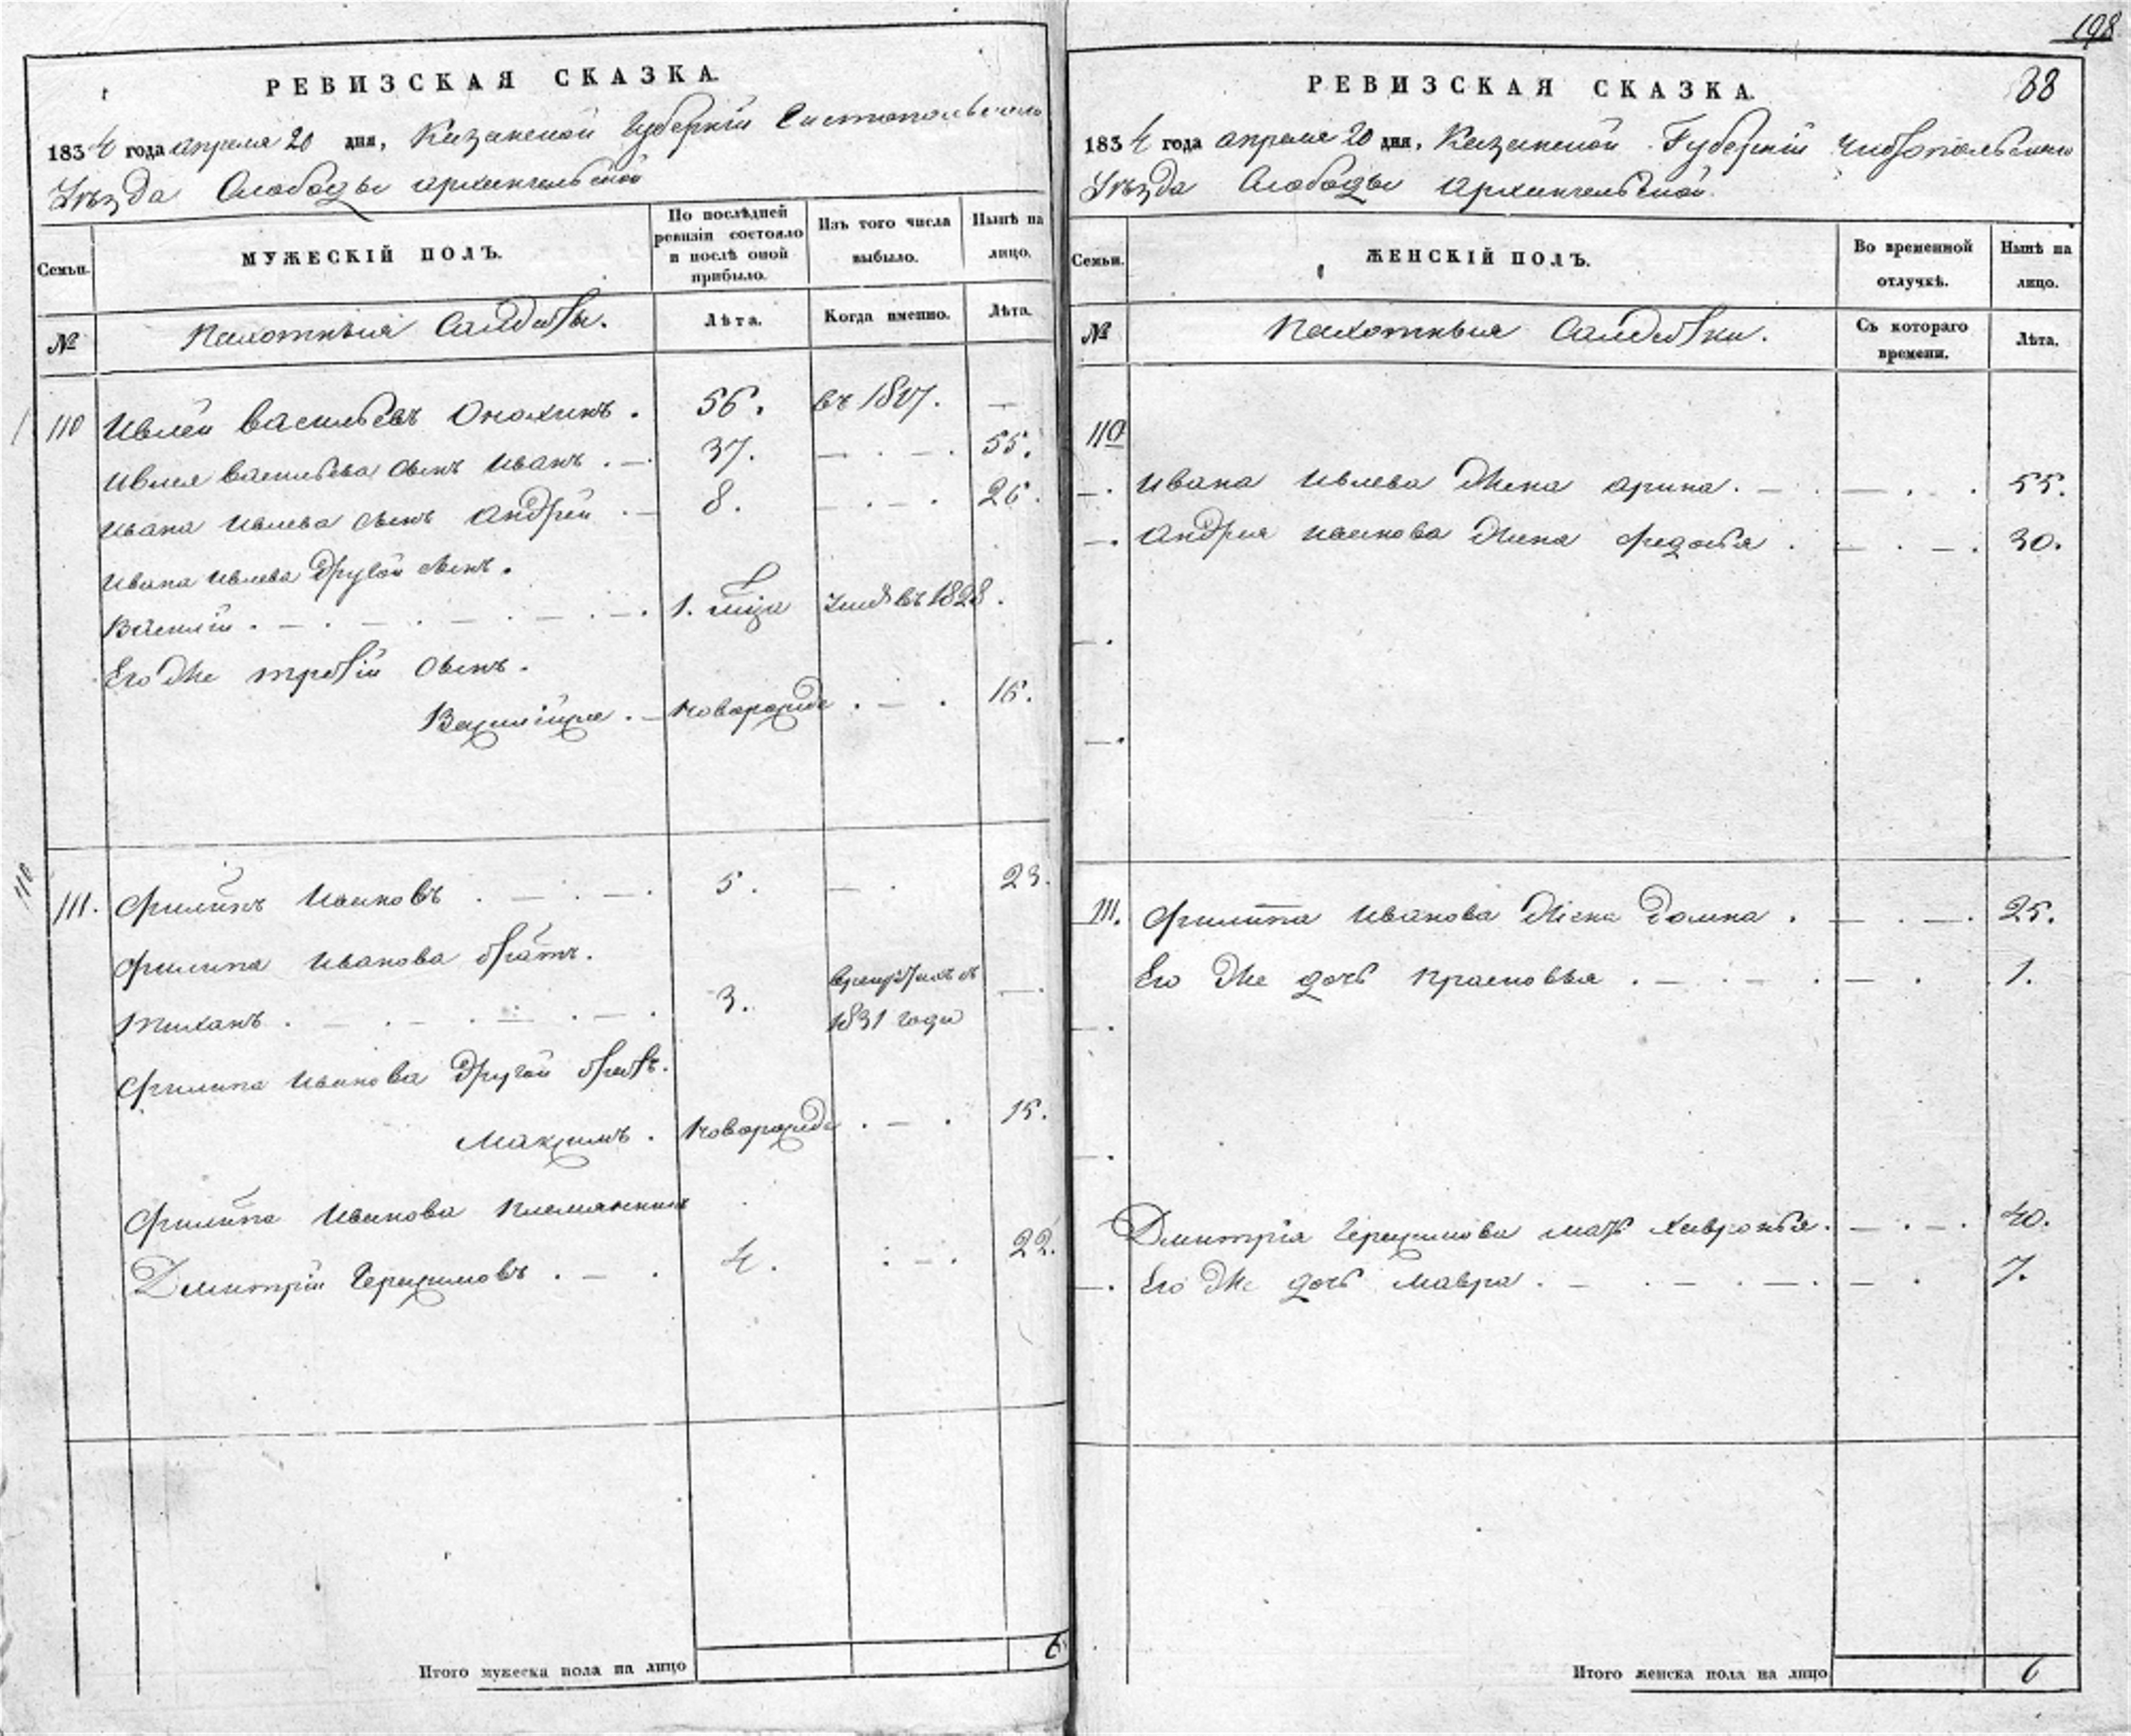 198
РЕВИЗСКАЯ СКАЗКА.
1834 года апреля 20 дня, Казанской Губернїи Чистопольскаго
Уѣзда Слободы Архангельской
Семьи.
МУЖЕСКІЙ ПОЛЪ.
По послѣдней ревизіи состояло и послѣ оной прибыло.
Изъ того числа выбыло.
Нынѣ на лицо.
№
Пахотныя Салдаты.
Лѣта.
Когда именно.
Лѣта.
110 Ивлей Васильевъ 56. въ 1827. —
Ивлея Васильева сынъ Иванъ. — 37. — . — . 55.
Ивана Ивлева сынъ Андрей . — 8. — . — . 26.
Ивана Ивлева другой сынъ.
Василїй . — . — . — . — . 1. мца въ 1828.
Его же третїй сынъ.
Василїй же . — новорожде . — . 16.
110
111. Филипъ Ивановъ . — . — . 5. — . 23.
Филипа Иванова братъ.
Тиханъ . — . — . — . — . 3. въ рекрутахъ съ 1831 года —.
Филипа Иванова другой братъ.
Максимъ . новорожде . — . 15.
Филипа Иванова племянникъ
Дмитрїй Герасимовъ . — . 4. : — . 22.
Итого мужеска пола на лицо 6.
РЕВИЗСКАЯ СКАЗКА. 38
1834 года апреля 20 дня, Казанской Губернїи Чистопольскаго
Уѣзда Слободы Архангельской.
Семьи.
ЖЕНСКІЙ ПОЛЪ.
Во временной отлучкѣ.
Нынѣ на лицо.
№
Пахотныя Салдатки.
Съ котораго времени.
Лѣта.
110
—. Ивана Ивлева жена Арина. — . — . . 55.
—. Андрея Иванова жена Федосья . — . — . 30.
—.
—.
111. Филипа Иванова жена Домна . — . — . 25.
Его же дочь Прасковья . — . — . — . 1.
—.
—.
Дмитрїя Герасимова мать Хавронья. — . — . 40.
—. Его же дочь Мавра . — . — . — . — . 7.
Итого женска пола на лицо 6